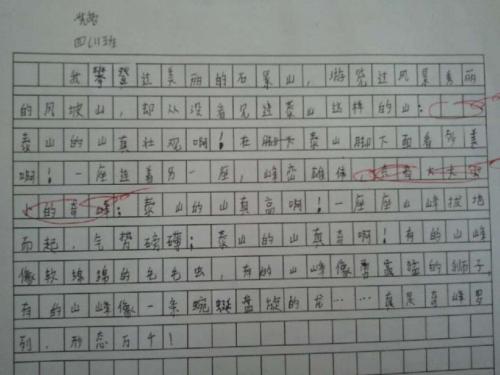 四(1)班
我攀登过美丽的石景山，游览过风景秀丽
的风坡山，却从没看见过泰山这样的山：
泰山的山真壮观啊！在泰山脚下面看多美
啊！一座连着另一座，峰峦雄伟
的奇峰；泰山的山真高啊！一座座山峰拔地
而起，气势磅礴；泰山的山真奇啊！有的山峰
像软绵绵的毛毛虫，有的山峰像的狮子，
有的山峰像一条蜿蜒盘旋的龙……真是奇峰罗
列，形态万千！